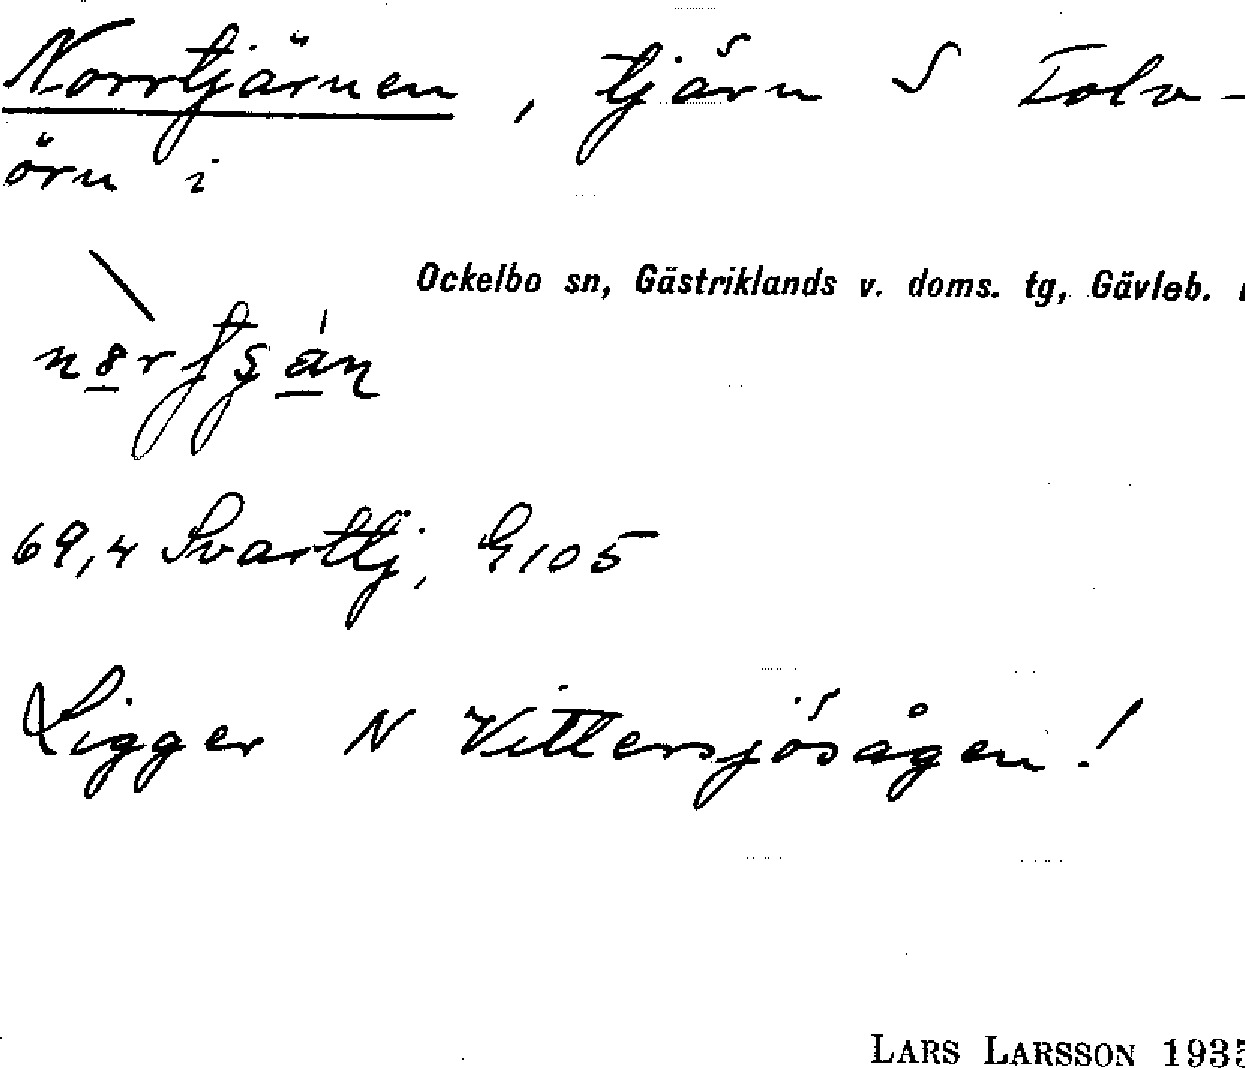 Norrtjärnen, tjärn S Tolv-
örn i
Ockelbo sn, Gästriklands v. doms. tg, Gävleb.
69,4 Svarttj, G105
Ligger N Vittersjösågen!
LARS LARSSON 1935